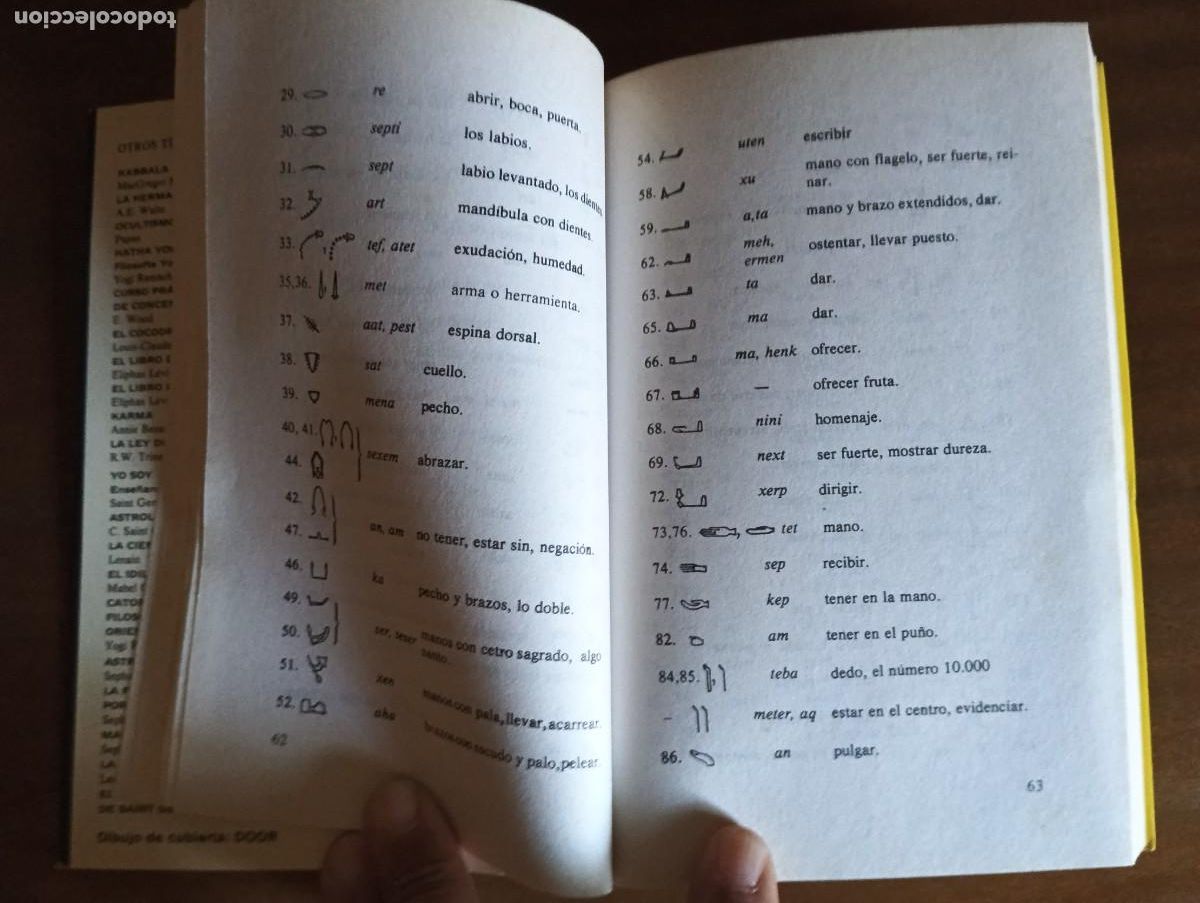 todocoleccion
OTROS
KABBALA
MacGregor
LA HERMA
A.E. Waite
OCULTISM
Papus
HATHA YO
Filosofía Yo
Yogi
CURSO
DE CONCE
E. Wood
EL COCOD
Louis-Claude
EL LIBRO
Eliphas Levi
EL LIBRO
Eliphas Levi
KARMA
Annie
LA LEY D
R.W. Trine
YO SOY
Enseñan
Saint Ger
ASTROL
C. Saint
LA CIE
EL
Mabel
FILOS
Yogi
DE SAINT
Dibujo de cubierta: DOOR
29. re abrir, boca, puerta.
30. septi los labios.
31. sept labio levantado, los dientes
32. art mandíbula con dientes.
33. tef, atet exudación, humedad.
35,36. met arma o herramienta.
37. aat, pest espina dorsal.
38. sat cuello.
39. mena pecho.
40, 41.
44. sexem abrazar.
42.
47. an, am no tener, estar sin, negación.
46. ka pecho y brazos, lo doble.
49.
50. ser, teser manos con cetro sagrado, algo
santo.
51. xen manos con pala, llevar, acarrear.
52. aha brazos con escudo y palo, pelear.
62
54. uten escribir
58. xu mano con flagelo, ser fuerte, rei-
nar.
59. a,ta mano y brazo extendidos, dar.
62. meh, ostentar, llevar puesto.
ermen
63. ta dar.
65. ma dar.
66. ma, henk ofrecer.
67. — ofrecer fruta.
68. nini homenaje.
69. next ser fuerte, mostrar dureza.
72. xerp dirigir.
73,76. , tet mano.
74. sep recibir.
77. kep tener en la mano.
82. am tener en el puño.
84,85. teba dedo, el número 10.000
– meter, aq estar en el centro, evidenciar.
86. an pulgar.
63